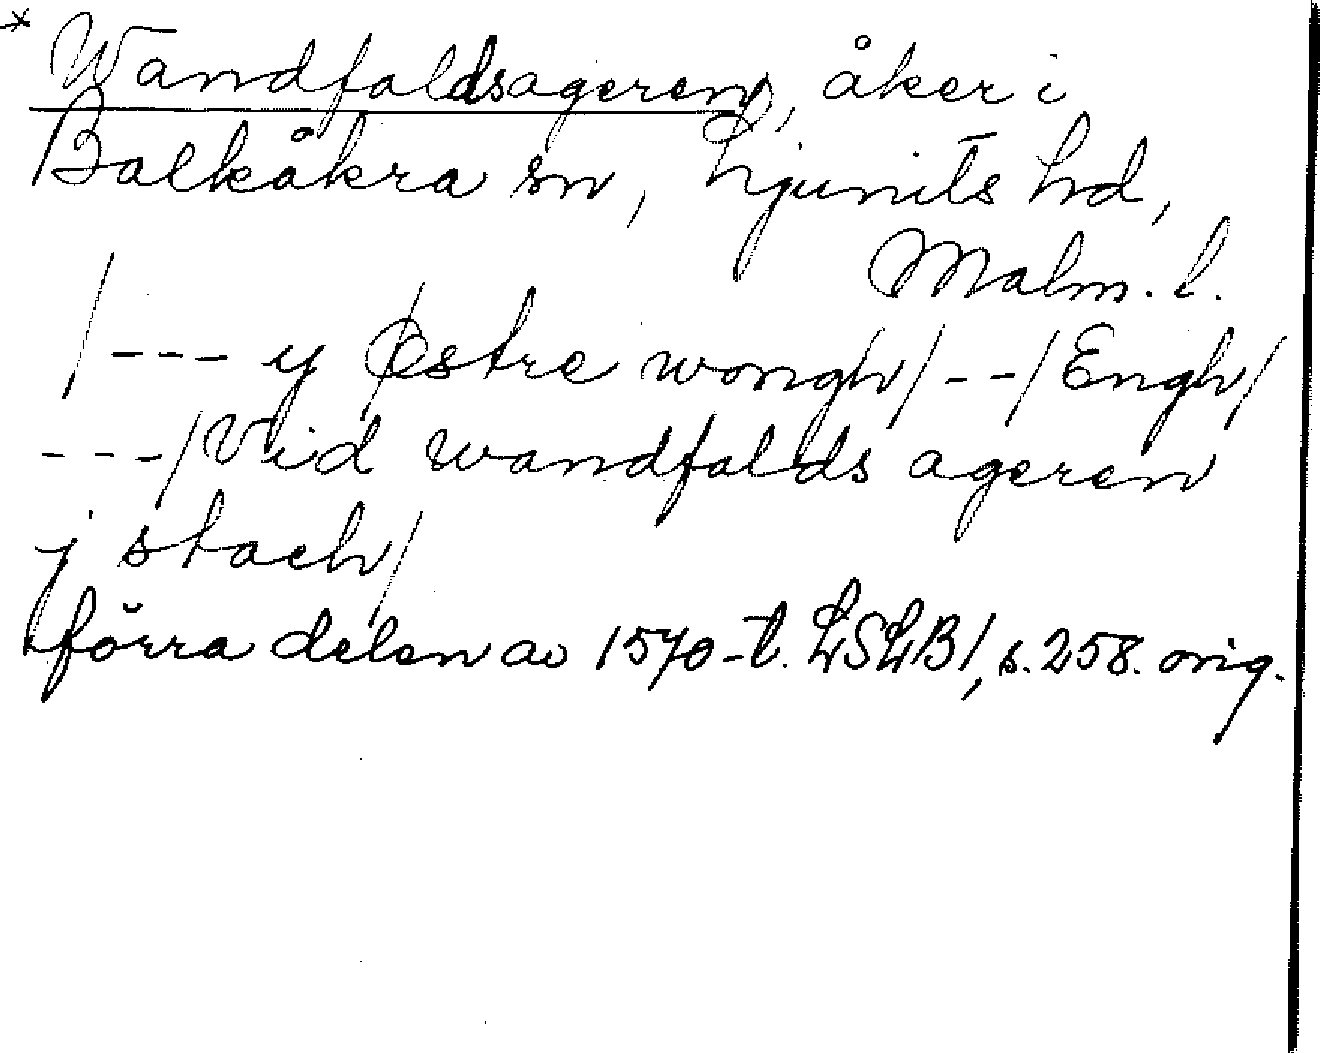 * Wandfaldsageren, åker i
Balkåkra sn, Ljunits hd,
Malm. l.
/--- y Østre wongh/--/Engh/
---/Vid wandfalds ageren
j stach/
förra delen av 1570-t. LSLB1, s. 258. orig.